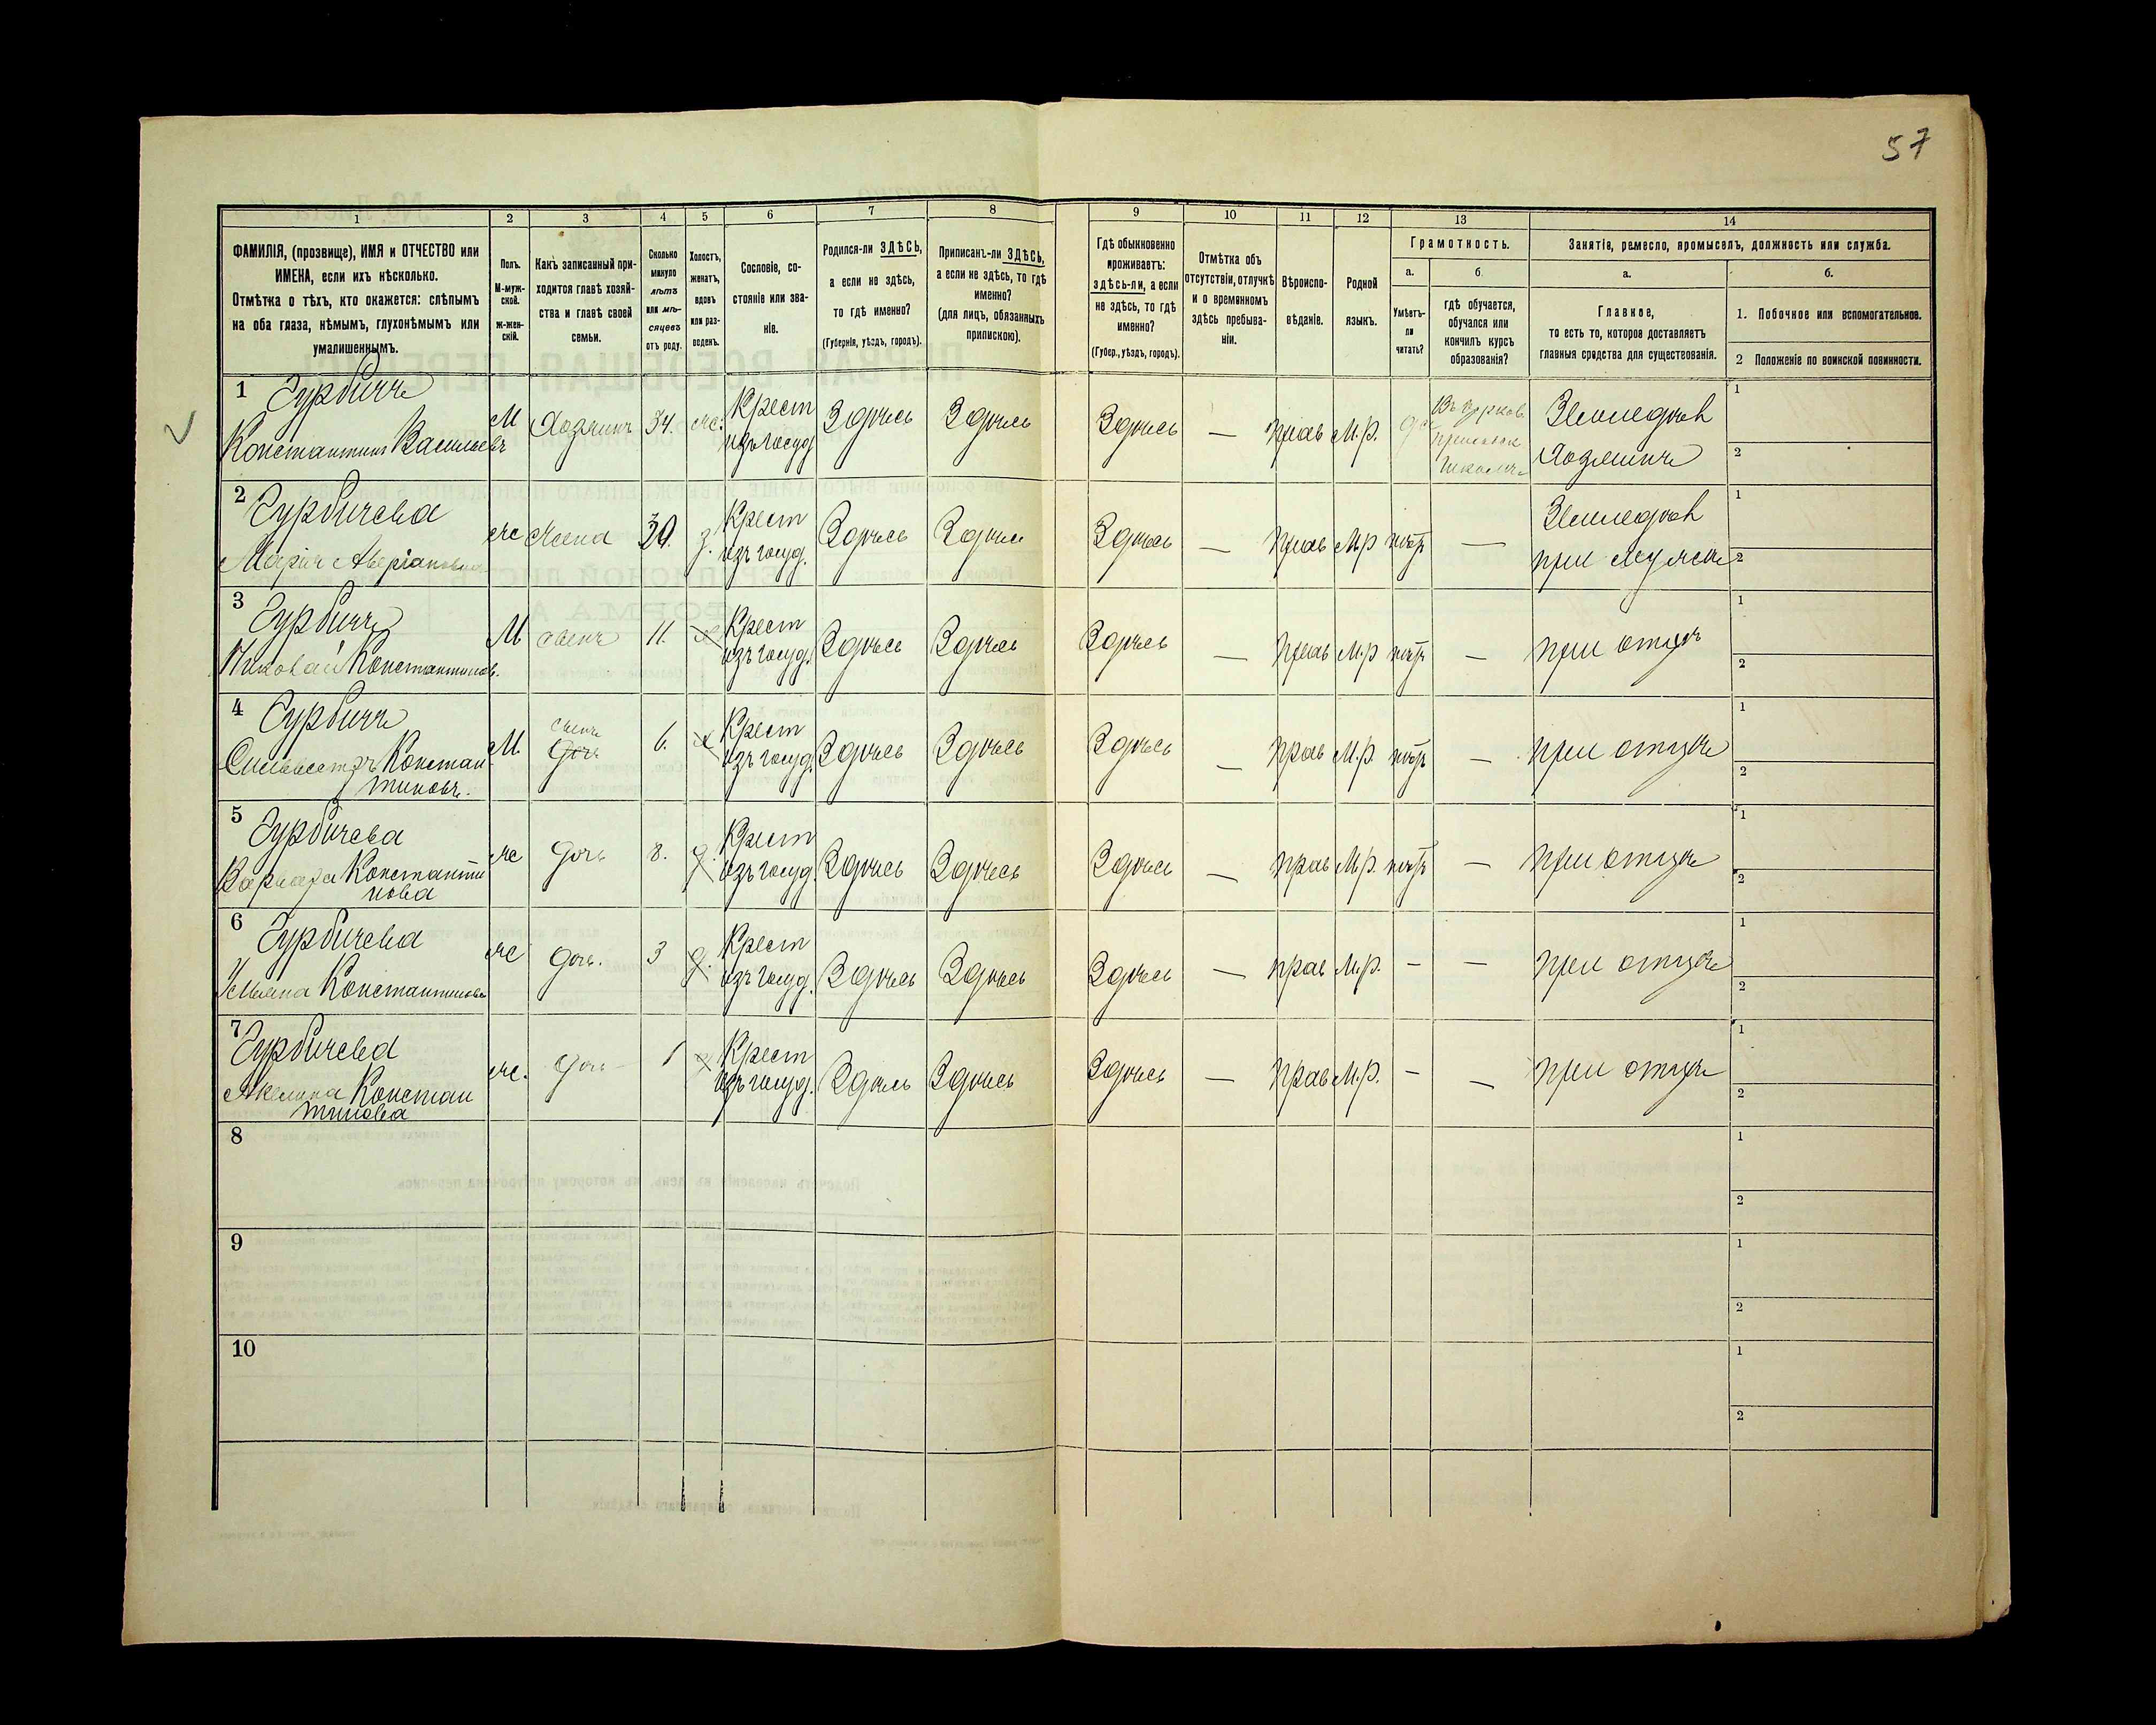 57
1 2 3 4 5 6 7 8 9 10 11 12 13 14
ФАМИЛІЯ, (прозвище), ИМЯ и ОТЧЕСТВО или
ИМЕНА, если ихъ нѣсколько.
Отмѣтка о тѣхъ, кто окажется: слѣпымъ
на оба глаза, нѣмымъ, глухонѣмымъ или
умалишеннымъ.
Полъ.
М-муж-
ской.
ж-жен-
скій.
Какъ записанный при-
ходится главѣ хозяй-
ства и главѣ своей
семьи.
Сколько
минуло
лѣтъ
или мѣ-
сяцевъ
отъ роду.
Холостъ,
женатъ,
вдовъ
или раз-
веденъ.
Сословіе, со-
стояніе или зва-
ніе.
Родился-ли ЗДѢСЬ,
а если не здѣсь,
то гдѣ именно?
(Губернія, уѣздъ, городъ).
Приписанъ-ли ЗДѢСЬ,
а если не здѣсь, то гдѣ
именно?
(для лицъ, обязанныхъ
припискою).
Гдѣ обыкновенно
проживаетъ:
здѣсь-ли, а если
не здѣсь, то гдѣ
именно?
(Губер., уѣздъ, городъ).
Отмѣтка объ
отсутствіи, отлучкѣ
и о временномъ
здѣсь пребыва-
ніи.
Вѣроиспо-
вѣданіе.
Родной
языкъ.
Грамотность.
а.
Умѣетъ-
ли
читать?
б.
гдѣ обучается,
обучался или
кончилъ курсъ
образованія?
Занятіе, ремесло, промыселъ, должность или служба.
а.
Главное,
то есть то, которое доставляетъ
главныя средства для существованія.
б.
1. Побочное или вспомогательное.
2 Положеніе по воинской повинности.
1 Гурбичъ
Константинъ Васильевъ
М Хозяинъ 34. же. Крест
изъ госуд Здѣсь Здѣсь Здѣсь — прав М.р. да
Въ церков
приходск
школѣ
Землѣдѣл
Хозяинъ
1
2
2 Гурбичева
Марія Аверіановна
же Жена 30. з. Крест
изъ госуд. Здѣсь Здѣсь Здѣсь — прав М.р нѣтъ —
Землѣдѣл
при мужѣ
1
2
3 Гурбичъ
Николай Константинов.
М сынъ 11. Крест
изъ госуд. Здѣсь Здѣсь Здѣсь — прав М.р нѣтъ — при отцѣ
1
2
4 Гурбичъ
Сильвестръ Констан
тиновъ.
М. сынъ
дочь
6. х Крест
изъ госуд. Здѣсь Здѣсь Здѣсь — прав М.р. нѣтъ — при отцѣ
1
2
5 Гурбичева
Варвара Константи
нова
же дочь 8. д. Крест
изъ госуд. Здѣсь Здѣсь Здѣсь — прав М.р. нѣтъ — при отцѣ
1
2
6 Гурбичева
Ульяна Константинова
же дочь. 3 д. Крест
изъ госуд. Здѣсь Здѣсь Здѣсь — прав М.р. — — при отцѣ
1
2
7 Гурбичева
Акелина Констан
тинова
же. дочь 1 Крест
изъ госуд. Здѣсь Здѣсь Здѣсь — прав М.р. — — при отцѣ
1
2
8
1
2
9
1
2
10
1
2